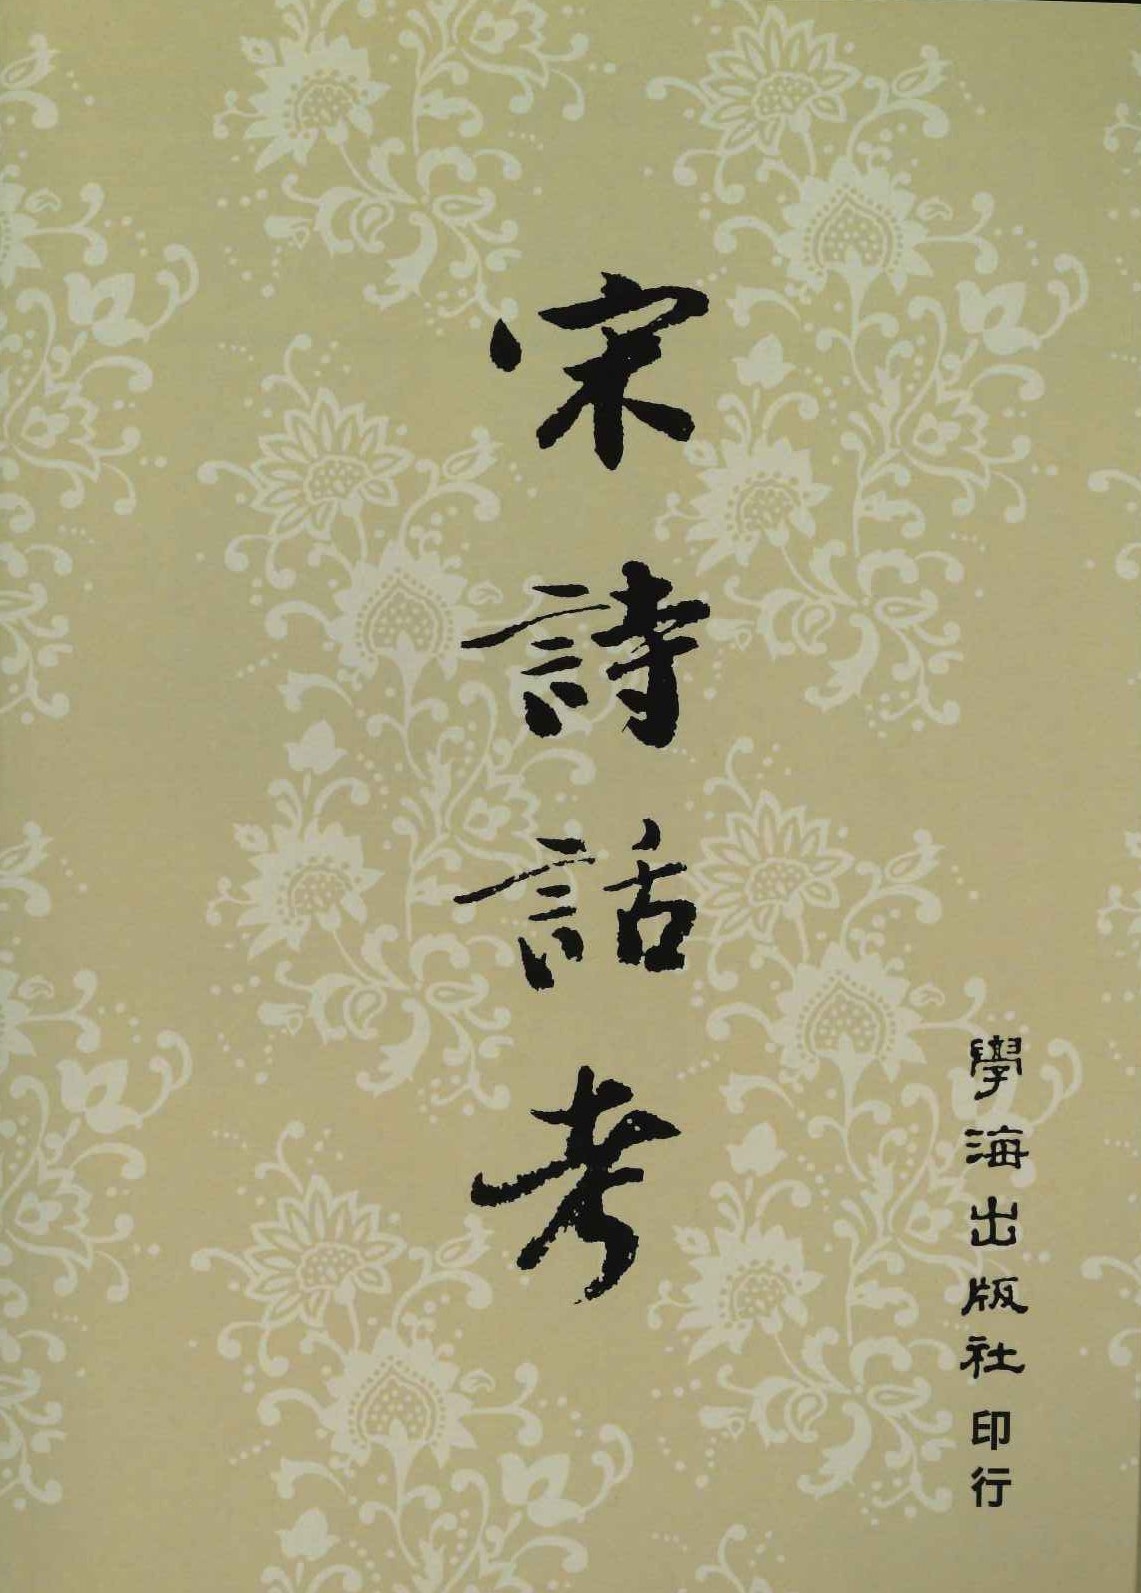 宋詩話考
學海出版社印行